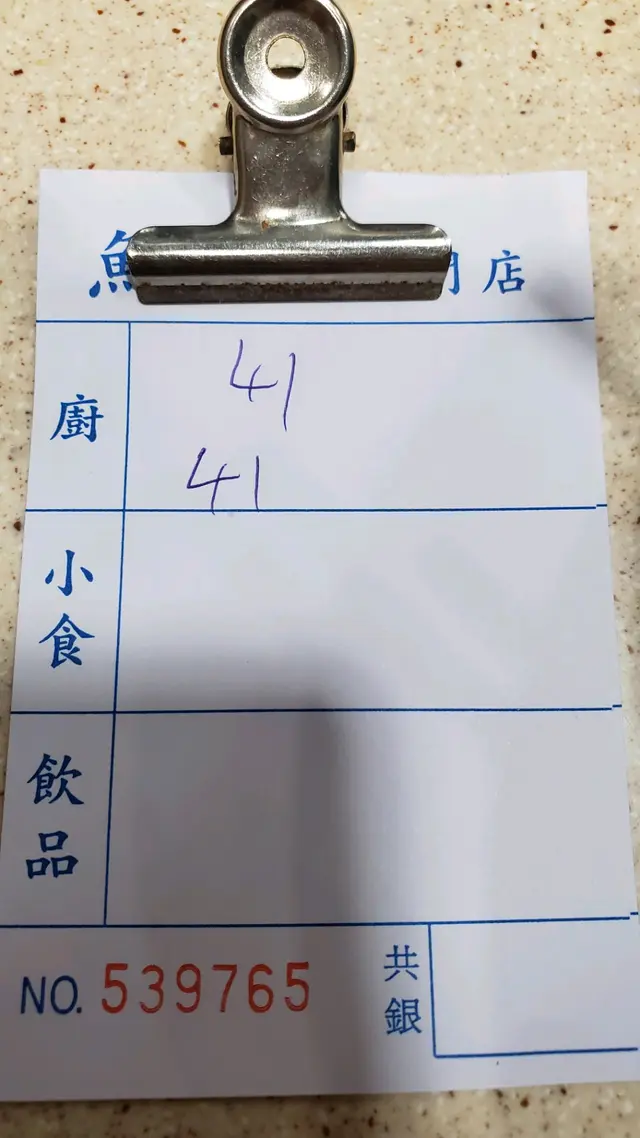 店
廚
41
41
小食
飲品
NO. 539765
共銀